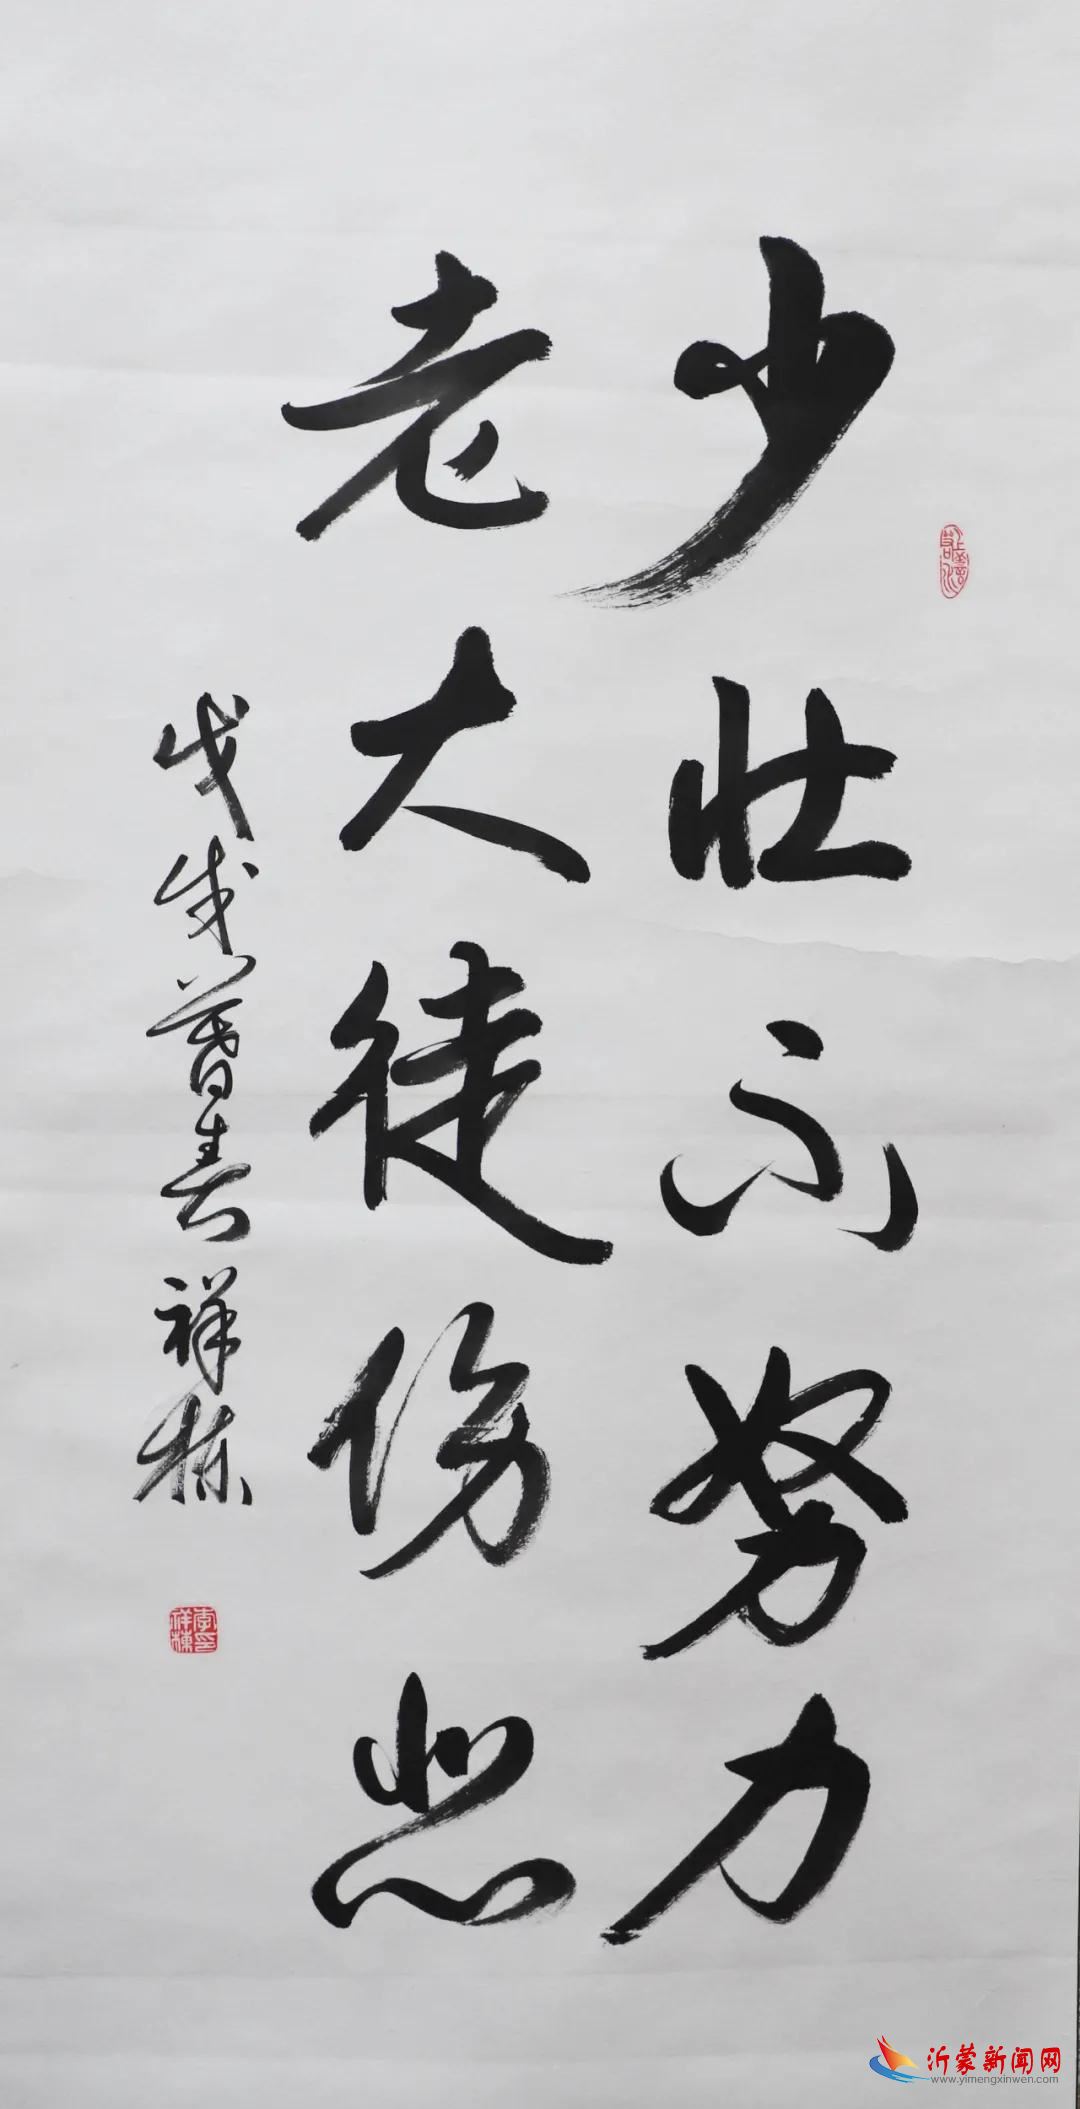 少壮不努力
老大徒伤悲
戊戌暮春祥栋
李印祥栋
沂蒙新闻网
www.yimengxinwen.com